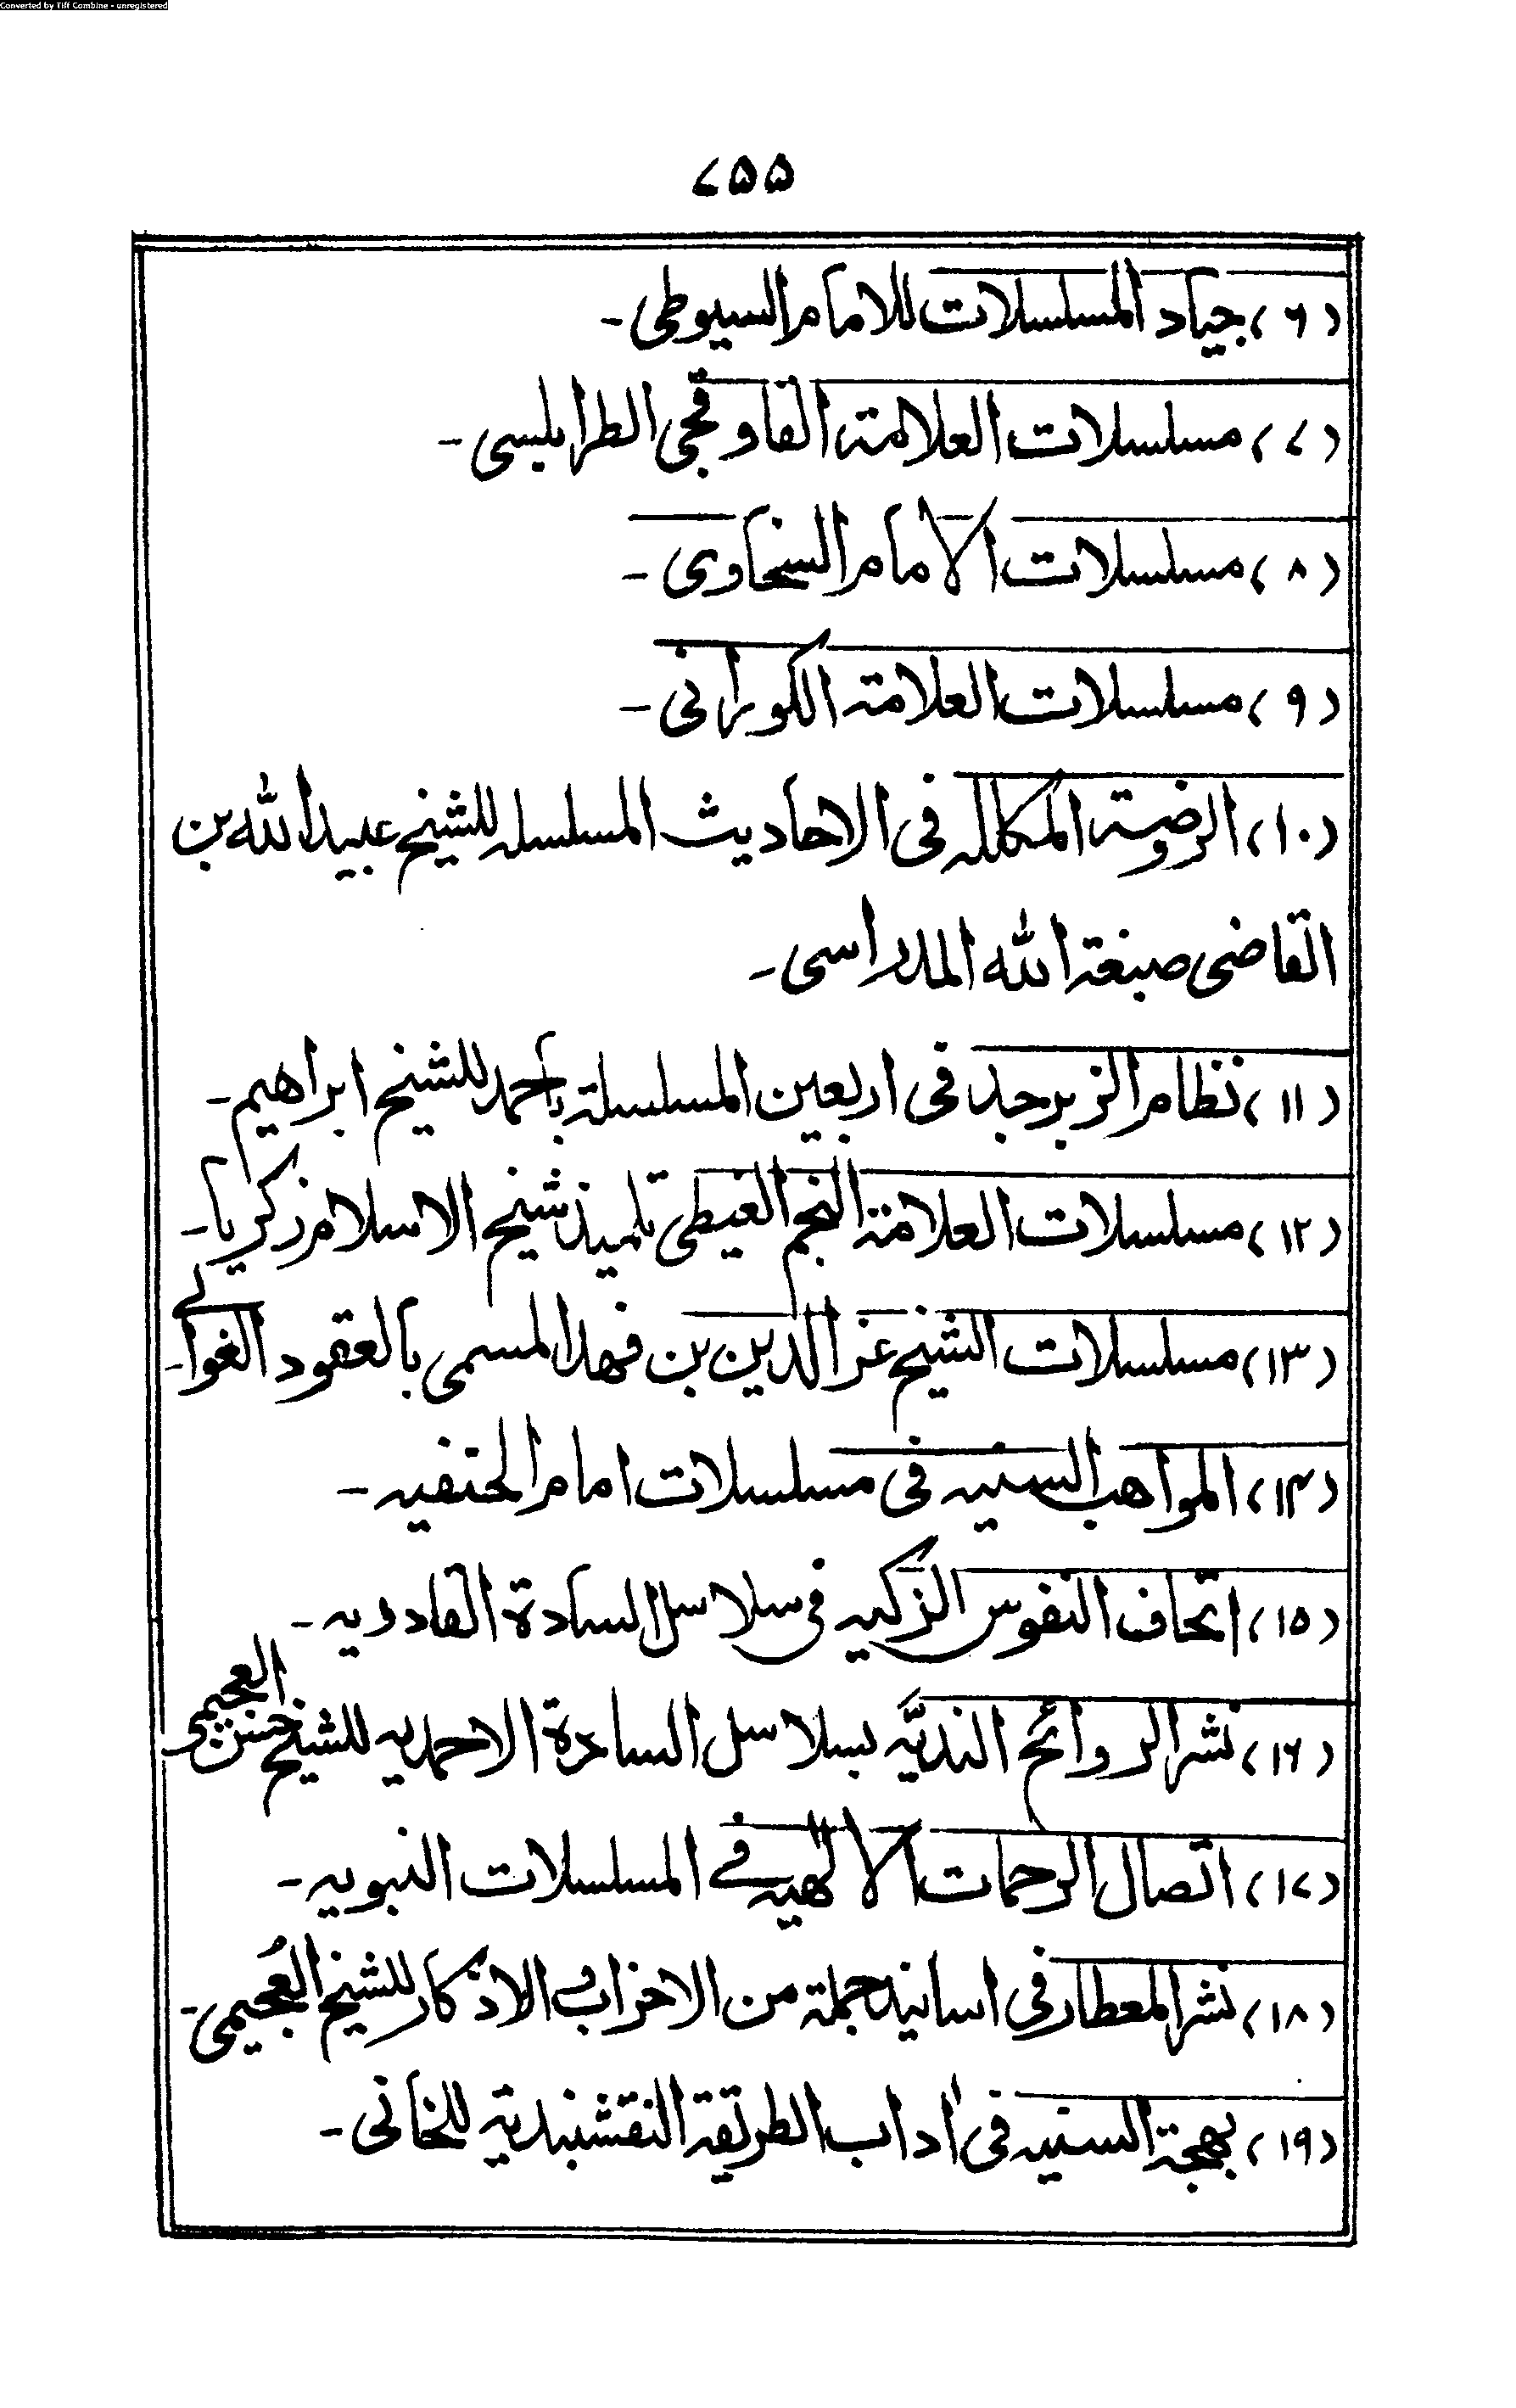 Converted by Tiff Combine - unregistered
۷۵۵
(۶) جیاد المسلسلات للامام السیوطی۔
(۷) مسلسلات العلامۃ القاوقجی الطرابلسی۔
(۸) مسلسلات الامام السخاوی۔
(۹) مسلسلات العلامۃ الکورانی۔
(۱۰) الروضۃ المکللہ فی الاحادیث المسلسلہ للشیخ عبیداللہ بن
القاضی صبغۃ اللہ المدراسی۔
(۱۱) نظام الزبرجد فی اربعین المسلسلۃ باحمد للشیخ ابراھیم۔
(۱۲) مسلسلات العلامۃ النجم الغیطی تلمیذ شیخ الاسلام زکریا۔
(۱۳) مسلسلات الشیخ عز الدین بن فھد المسمی بالعقود الغوالے۔
(۱۴) المواھب السنیہ فی مسلسلات امام الحنفیہ۔
(۱۵) اتحاف النفوس الزکیہ فی سلاسل السادۃ القادریہ۔
(۱۶) نشر الروائح الندیَّہ بسلاسل السادۃ الاحمدیہ للشیخ حسن العجیمی
(۱۷) اتصال الرحمات الالٰھیہ فے المسلسلات النبویہ۔
(۱۸) نشر المعطار فی اسانید جملۃ من الاحزاب و الاذکار للشیخ العُجیمی۔
(۱۹) بھجۃ السنیہ فی اٰداب الطریقۃ النقشبندیۃ للخانی۔